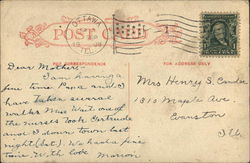 OTTAWA
POST CARD
FOR CORRESPONDENCE
Dear Mother:-
I am having a
fine time. Papa and I
have taken several
walks. Miss Wait one of
the nurses took Gertrude
and I down town last
night (Sat). We had a fine
time. With love
Marion
Mrs Henry S.
1810 Maple Ave.
Evanston
Ill